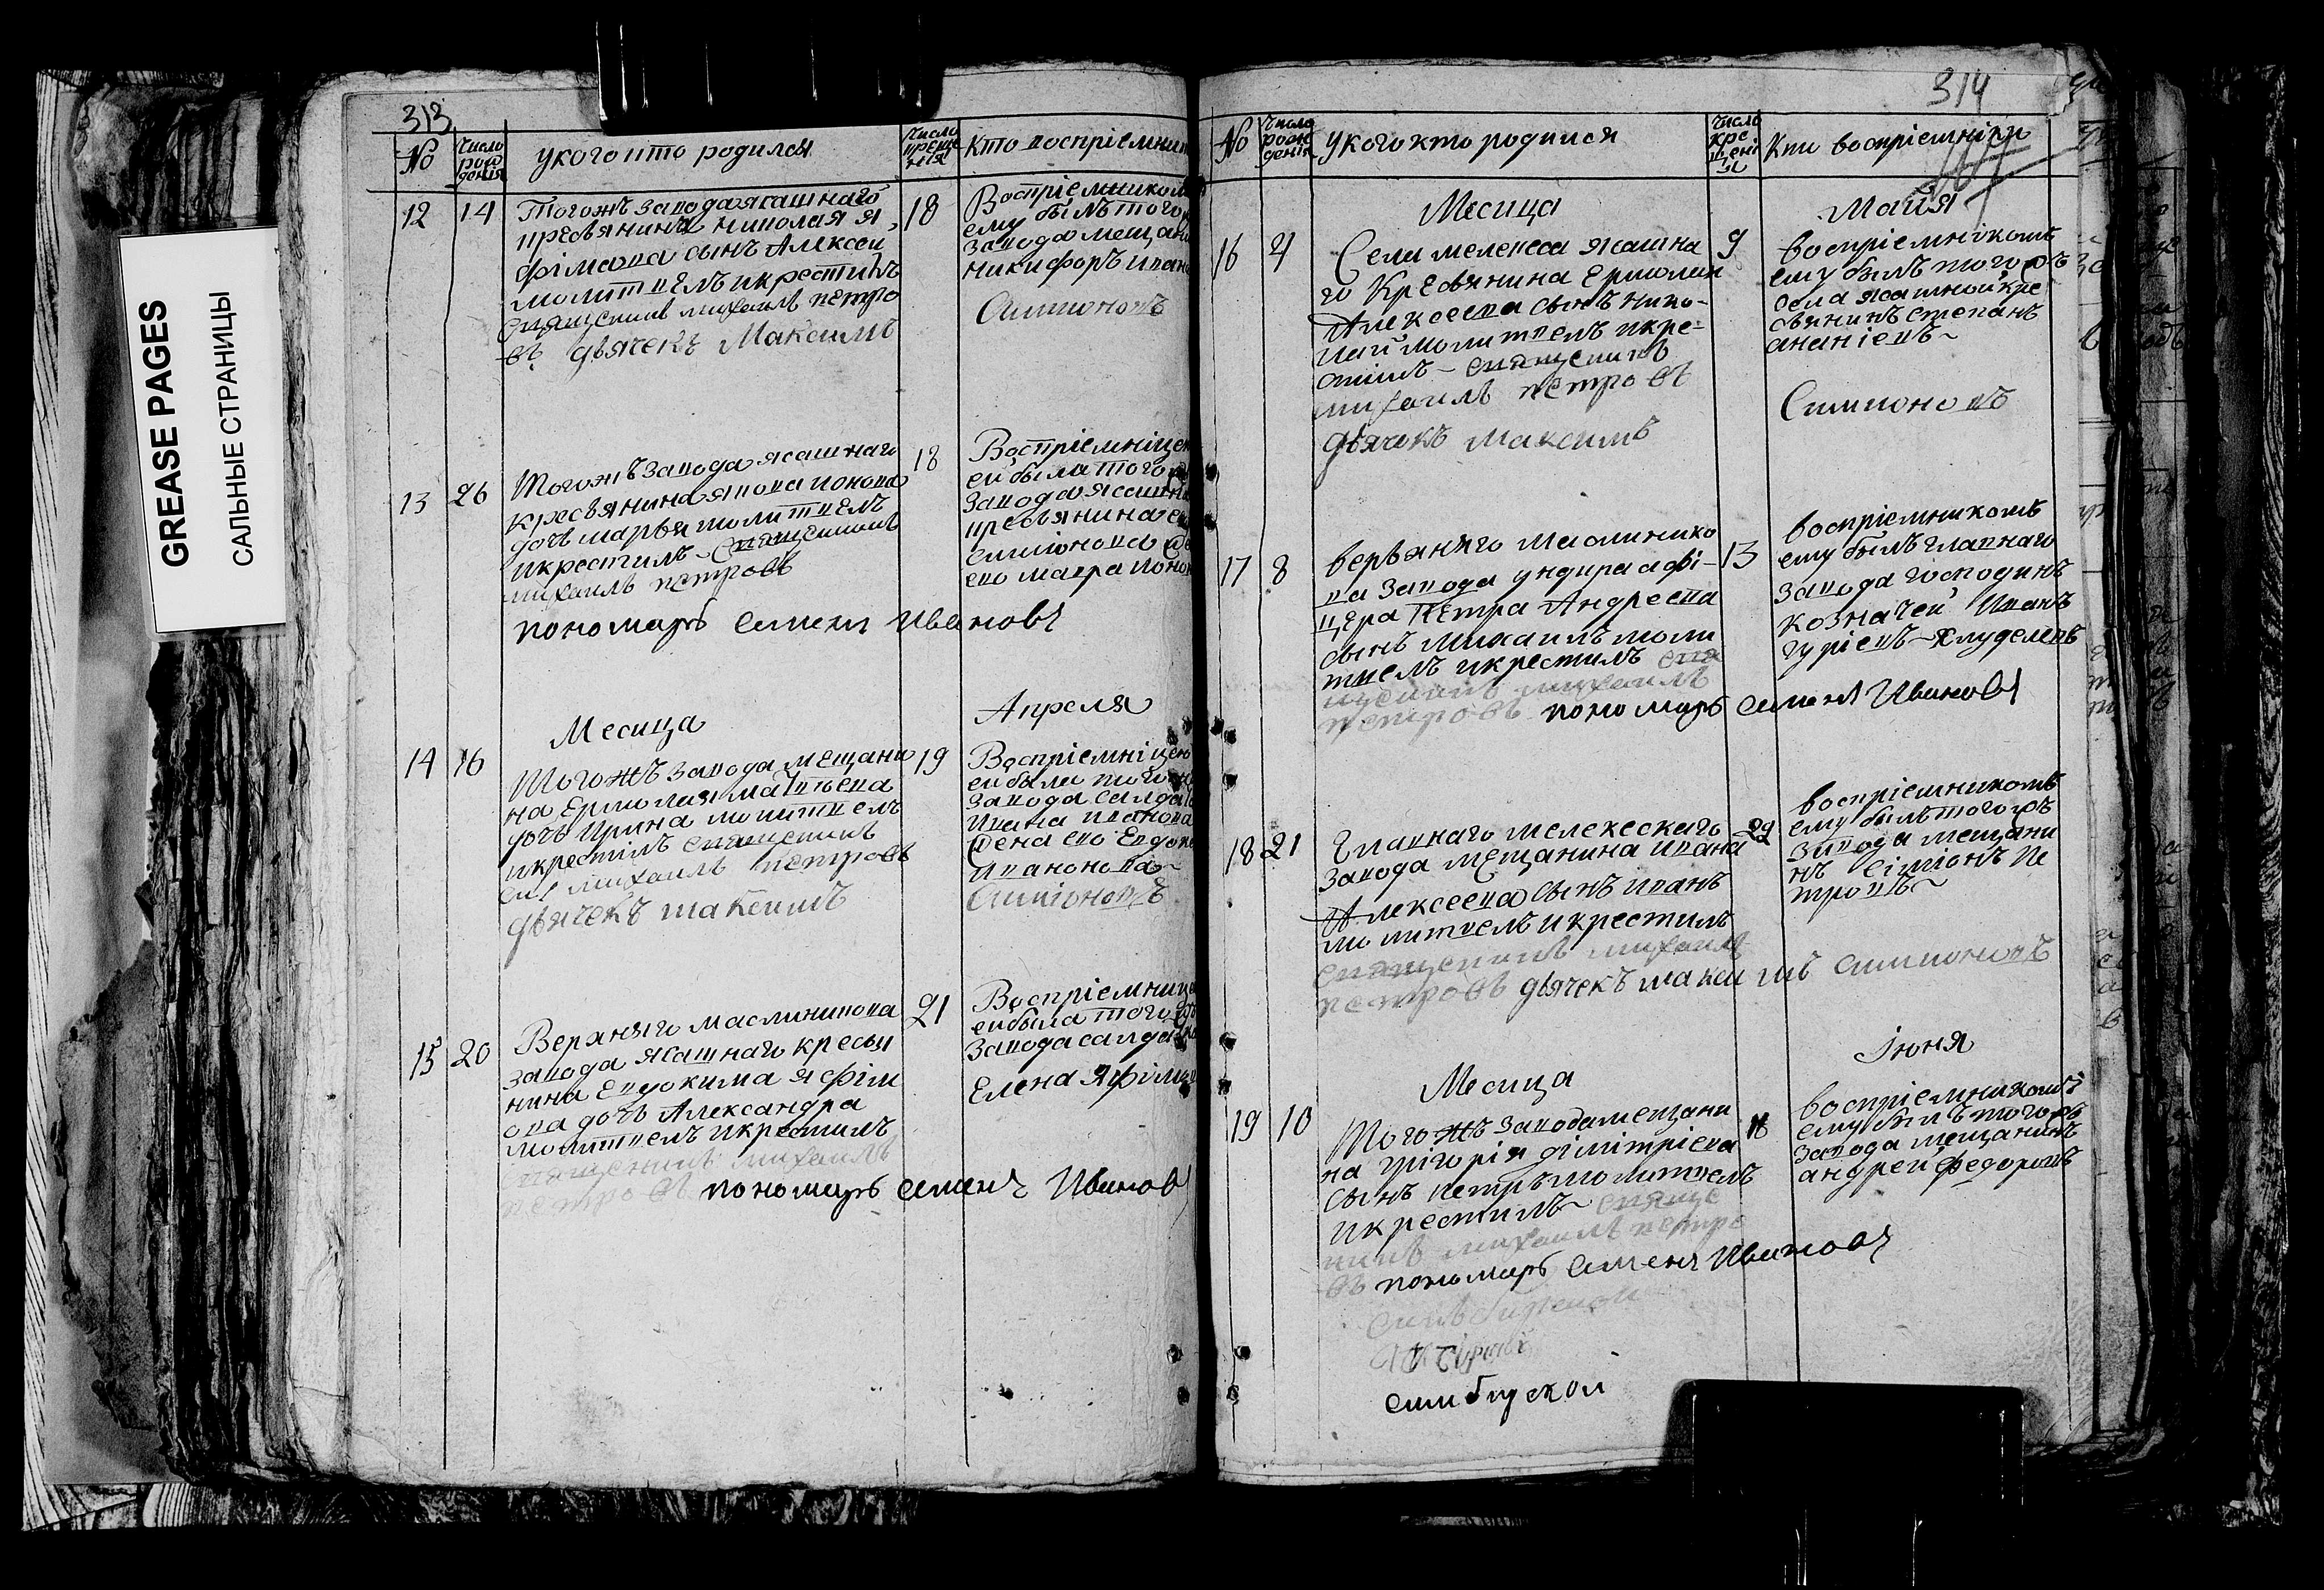 GREASE PAGES
САЛЬНЫЕ СТРАНИЦЫ
313
No
Число рождения
у кого кто родился
Число крещения
Кто воспріемни
12
14
Тогожъ завода ясашнаго
кресьянина николая я
фимова сынъ Алексей
молитвелъ и крестилъ
священникъ михаилъ петро
въ дьячекъ Максимъ
18
Воспріемникомъ
ему былъ того
завода мещани
никифоръ иван
Симионовъ
13
26
Тогожъ завода ясашнаго
кресьянина якова
дочь марья молитвелъ
и крестилъ священникъ
михаилъ петровъ
пономарь семенъ Ивановъ
18
Воспріемніцею
ей была того
завода ясашна
кресьянина
симіонова
ево мавра
Месяца
Апреля
14
16
Тогожъ завода мещани
на Ермолая матвева
дочь Ирина молитвелъ
и крестилъ священникъ
михаилъ петровъ
дьячекъ максимъ
19
Воспріемніцею
ей была того
завода салда
Ивана иванова
жена ево Евдок
Иванонова
Симіоновъ
15
20
Верхняго масликова
завода ясашнаго кресья
нина Евдокима яфим
ова дочь Александра
молитвелъ и крестилъ
священникъ михаилъ
петровъ пономарь семенъ Ивановъ
21
Воспріемница
ей была того
завода салда
Елена яфімо
314
No
Число рождения
у кого кто родился
Число крещени я
Кто воспріемнікъ
Месяца
Майя
16
4
Села мелекеса ясашна
го Кресьянина Ермолая
Алексеева сынъ нико-
лай молитвелъ и кре-
стилъ - священникъ
михаилъ петровъ
дьячекъ максимъ
9
воспріемнікомъ
ему былъ тогожъ
села ясашной кре
сьянинъ степанъ
ананіевъ
Симионовъ
17
8
верхняго маслинико
ва завода ундира афі-
цера Петра Андреева
сынъ михаилъ моли
твелъ и крестилъ свя
щенникъ михаилъ
петровъ пономарь семенъ Ивановъ
13
воспріемникомъ
ему былъ главнаго
завода господинъ
козначей Иванъ
гуріевъ
18
21
Главнаго мелекескаго
завода мещанина ивана
Алексеева сынъ иванъ
молитвелъ и крестилъ
священникъ михаилъ
петровъ дьячекъ максимъ симионовъ
29
воспріемникомъ
ему былъ тогожъ
завода мещани
нъ сіміонъ пе
тровъ
Месяца
Іюня
19
10
Тогожъ завода мещани
на грігорія дімітріева
сынъ петръ молитвелъ
и крестилъ свяще
никъ михаилъ петро
въ пономарь семенъ Ивановъ
симбирской
16
воспріемникомъ
ему былъ тогожъ
завода мещанинъ
андрей федоровъ